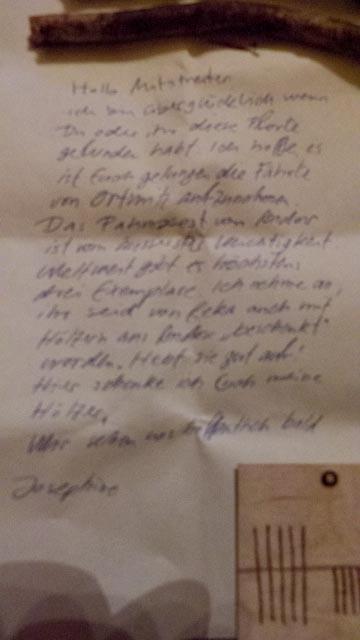 Hallo Mitstreiter
ich bin überglücklich wenn
Du oder ihr diese Flasche
gefunden habt. Ich hoffe, es
ist Euch gelungen die Fährte
von Ortwitz aufzunehmen.
Das vom
ist von Wichtigkeit.
Weltweit gibt es höchstens
drei Exemplare. Ich nehme an,
ihr seid von auch mit
Hölzern aus "beschenkt"
worden. Hebt sie gut auf!
Hier schenke ich Euch meine
Hölzer.
Wir sehen uns hoffentlich bald
Josephine